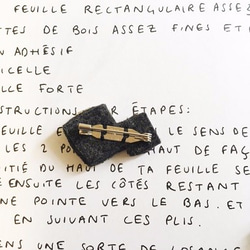 FEUILLE RECTANGULAIRE ASSEZ
TTES DE BOIS ASSEZ FINES ET
ADHÉSIF
ICELLE
LLE FORTE
STRUCTIONS PAR ÉTAPES:
FEUILLE LE SENS DE
LES 2 HAUT DE FAÇ
ITIÉ DU HAUT DE TA FEUILLE SE
ENSUITE LES CÔTÉS RESTANT
NE POINTE VERS LE BAS. ET
EN SUIVANT CES PLIS.
UNE SORTE DE LOSANGE